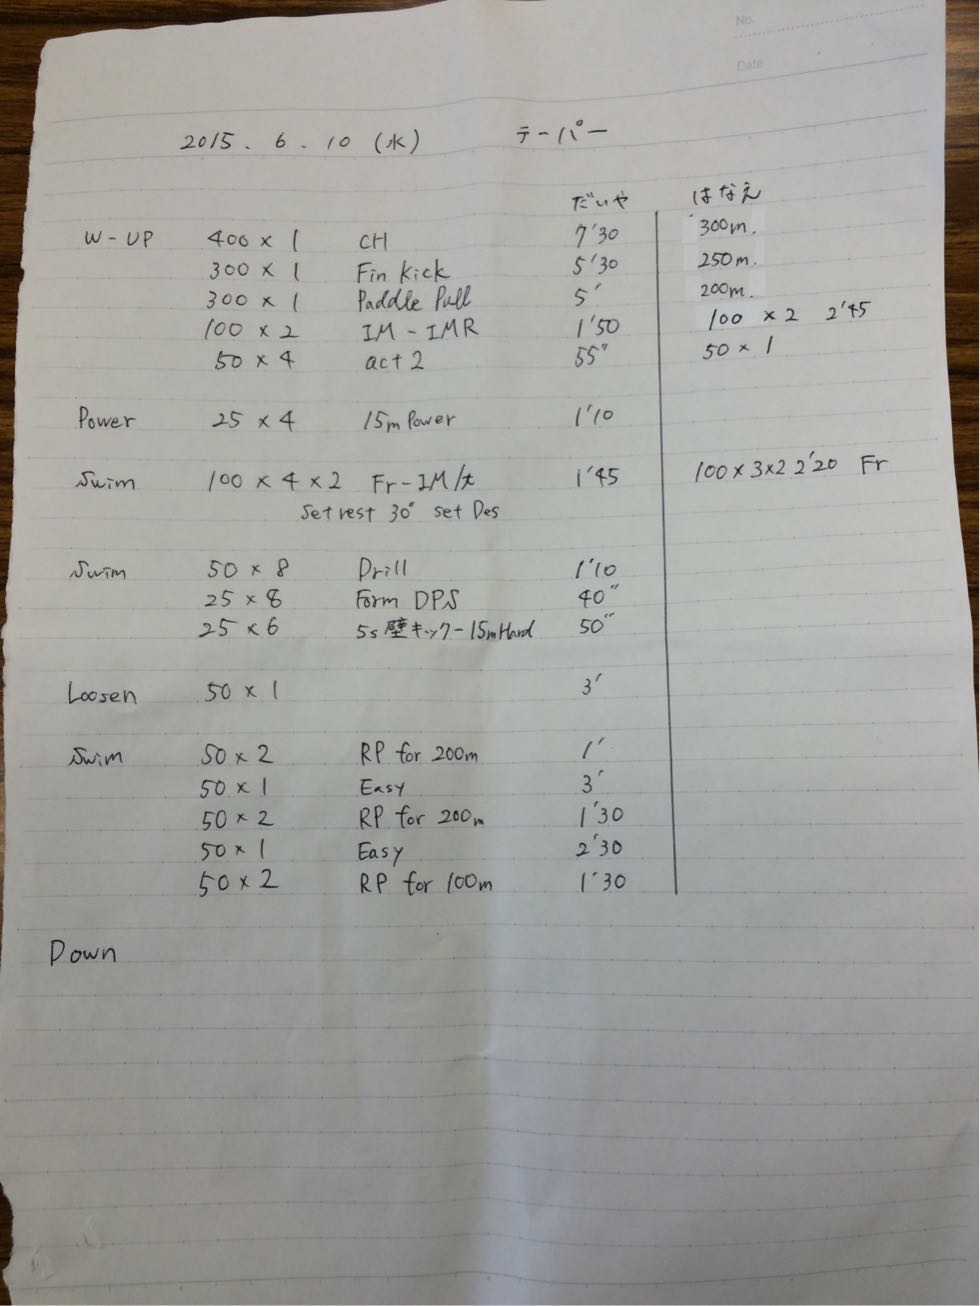 No.
Date
2015. 6. 10 (水) テーパー
だいや はなえ
W-UP 400 × 1 CH 7'30 300m.
300 × 1 Fin Kick 5'30 250m.
300 × 1 Paddle Pull 5' 200m.
100 × 2 IM-IMR 1'50 100 × 2 2'45
50 × 4 act 2 55" 50 × 1
Power 25 × 4 15m Power 1'10
Swim 100 × 4 × 2 Fr-IM/t 1'45 100 × 3 × 2 2'20 Fr
Set rest 30" set Des
Swim 50 × 8 Drill 1'10
25 × 8 Form DPS 40"
25 × 6 5s壁キック-15mHard 50"
Loosen 50 × 1 3'
Swim 50 × 2 RP for 200m 1'
50 × 1 Easy 3'
50 × 2 RP for 200m 1'30
50 × 1 Easy 2'30
50 × 2 RP for 100m 1'30
Down